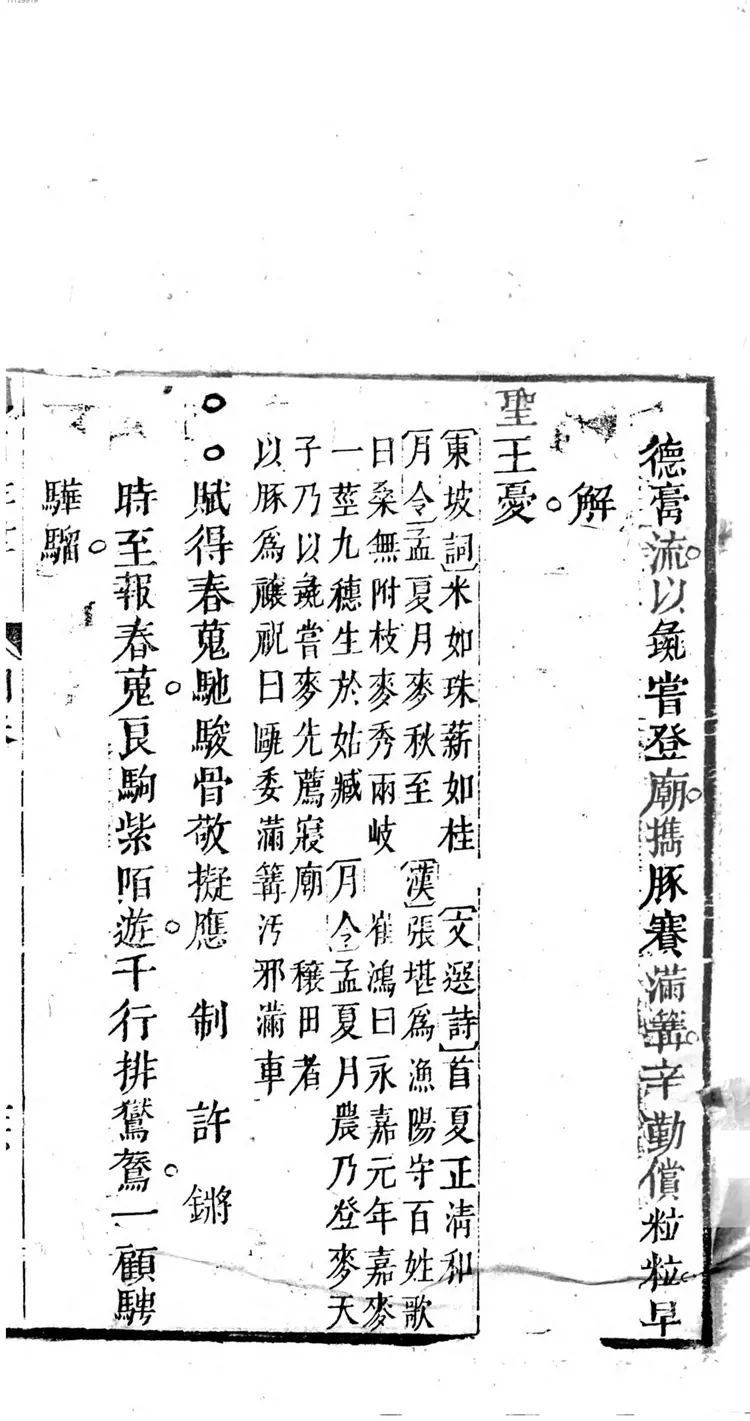 德膏流以彘嘗登廟攜豚賽滿篝辛勤償粒粒早
解
聖王憂
[東坡詞]米如珠薪如桂 [文選詩]首夏正清和
[月令]孟夏月麥秋至 [漢]張堪為漁陽守百姓歌
曰桑無附枝麥秀兩岐 崔鴻曰永嘉元年嘉麥
一莖九穗生於姑臧 [月令]孟夏月農乃登麥天
子乃以彘嘗麥先薦寢廟 穰田者
以豚為禳祝曰甌委滿篝汚邪滿車
賦得春蒐馳駿骨敬擬應 制 許鏘
時至報春蒐良駒紫陌遊千行排鸑鷟一顧騁
驊騮